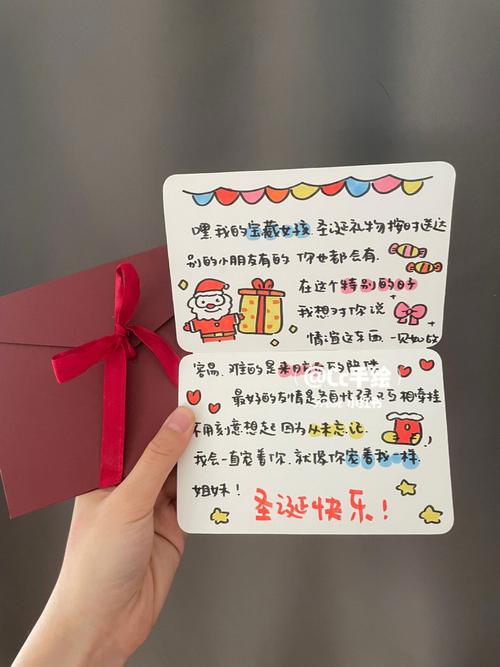 嘿,我的宝藏女孩.圣诞礼物按时送达
别的小朋友有的 你也都会有.
在这个特别的日子
我想对你说
情谊这东西 一见如故
容易,难的是来日方长的陪伴
@Cc手绘
最好的友情是各自忙碌又互相牵挂
不用刻意想起 因为从未忘记.
我会一直宠着你.就像你宠着我一样
姐妹!
圣诞快乐!